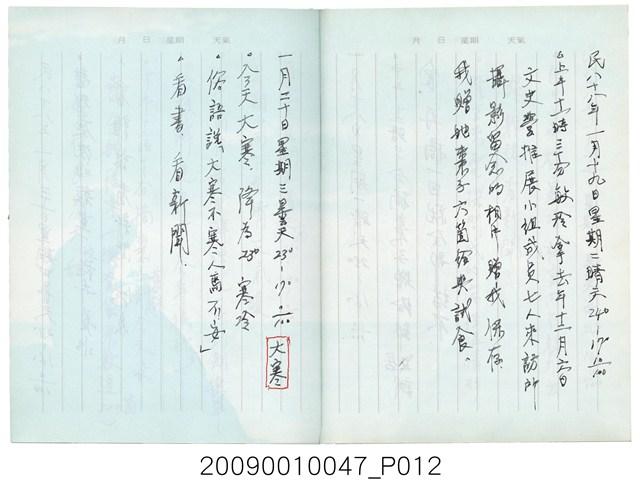 月 日 星期 天氣
民八十八年一月十九日星期二晴天24°-17° 0/100
上午十一時三分敏玲拿去年十二月六日
文史營推展小組成員七人來訪所
攝影留念的相片贈我保存
我贈她棗子六箇經典試食。
月 日 星期 天氣
一月二十日星期三曇天23°-17° 0/100 大寒
。今天大寒 降為23° 寒冷
。俗語説大寒不寒人馬不安」
。看書、看新聞、
20090010047_P012